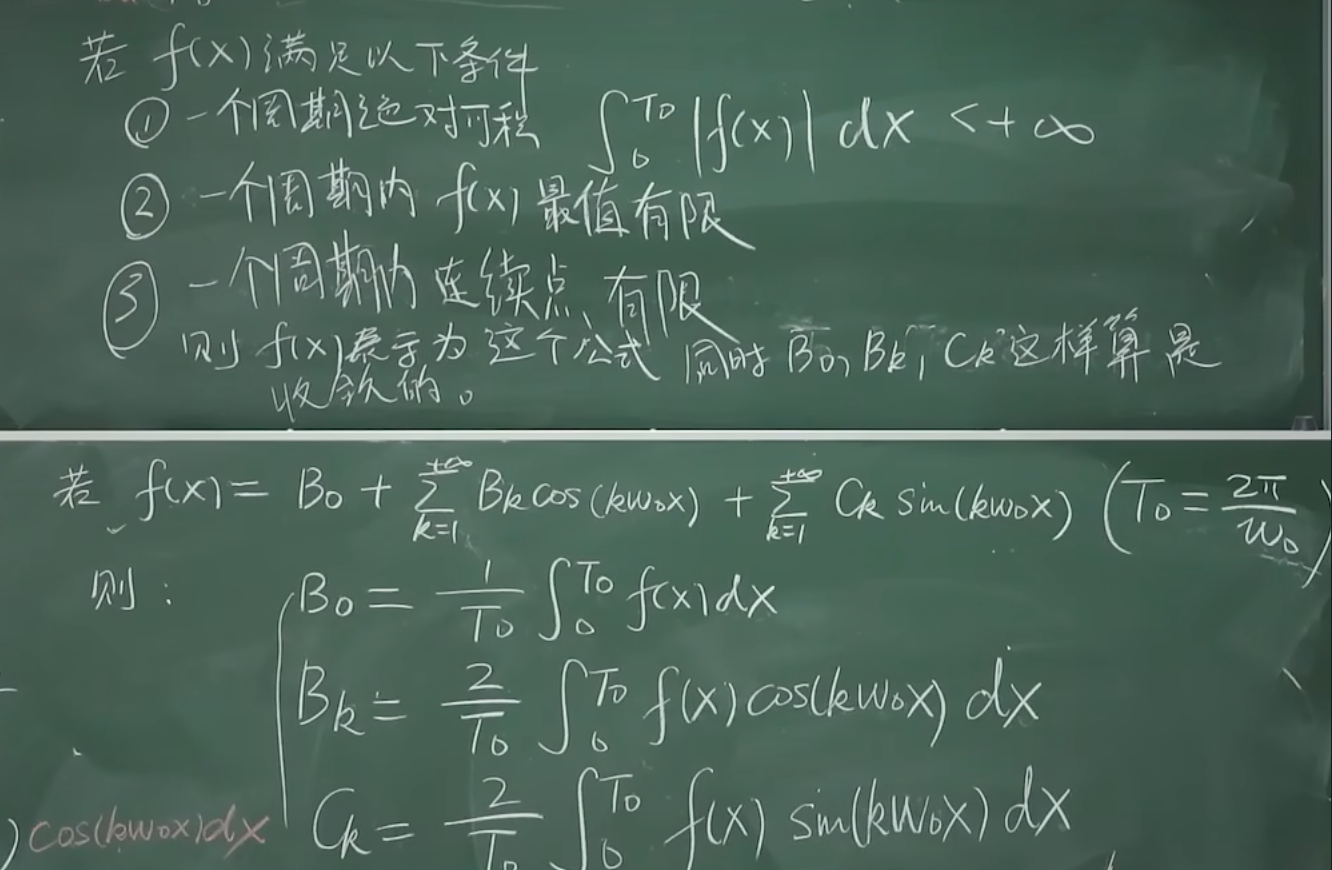 若 f(x)满足以下条件
① 一个周期绝对可积 ∫₀^T₀ |f(x)| dx < +∞
② 一个周期内 f(x) 最值有限
③ 一个周期内 连续点 有限
则 f(x)表示为这个公式 同时 B₀, Bₖ, Cₖ 这样算是
收敛的。
若 f(x) = B₀ + ∑_{k=1}^{+∞} Bₖ cos(kω₀x) + ∑_{k=1}^{+∞} Cₖ sin(kω₀x) (T₀ = 2π/ω₀)
则：
B₀ = 1/T₀ ∫₀^T₀ f(x)dx
Bₖ = 2/T₀ ∫₀^T₀ f(x) cos(kω₀x) dx
)cos(kω₀x)dx
Cₖ = 2/T₀ ∫₀^T₀ f(x) sin(kω₀x) dx